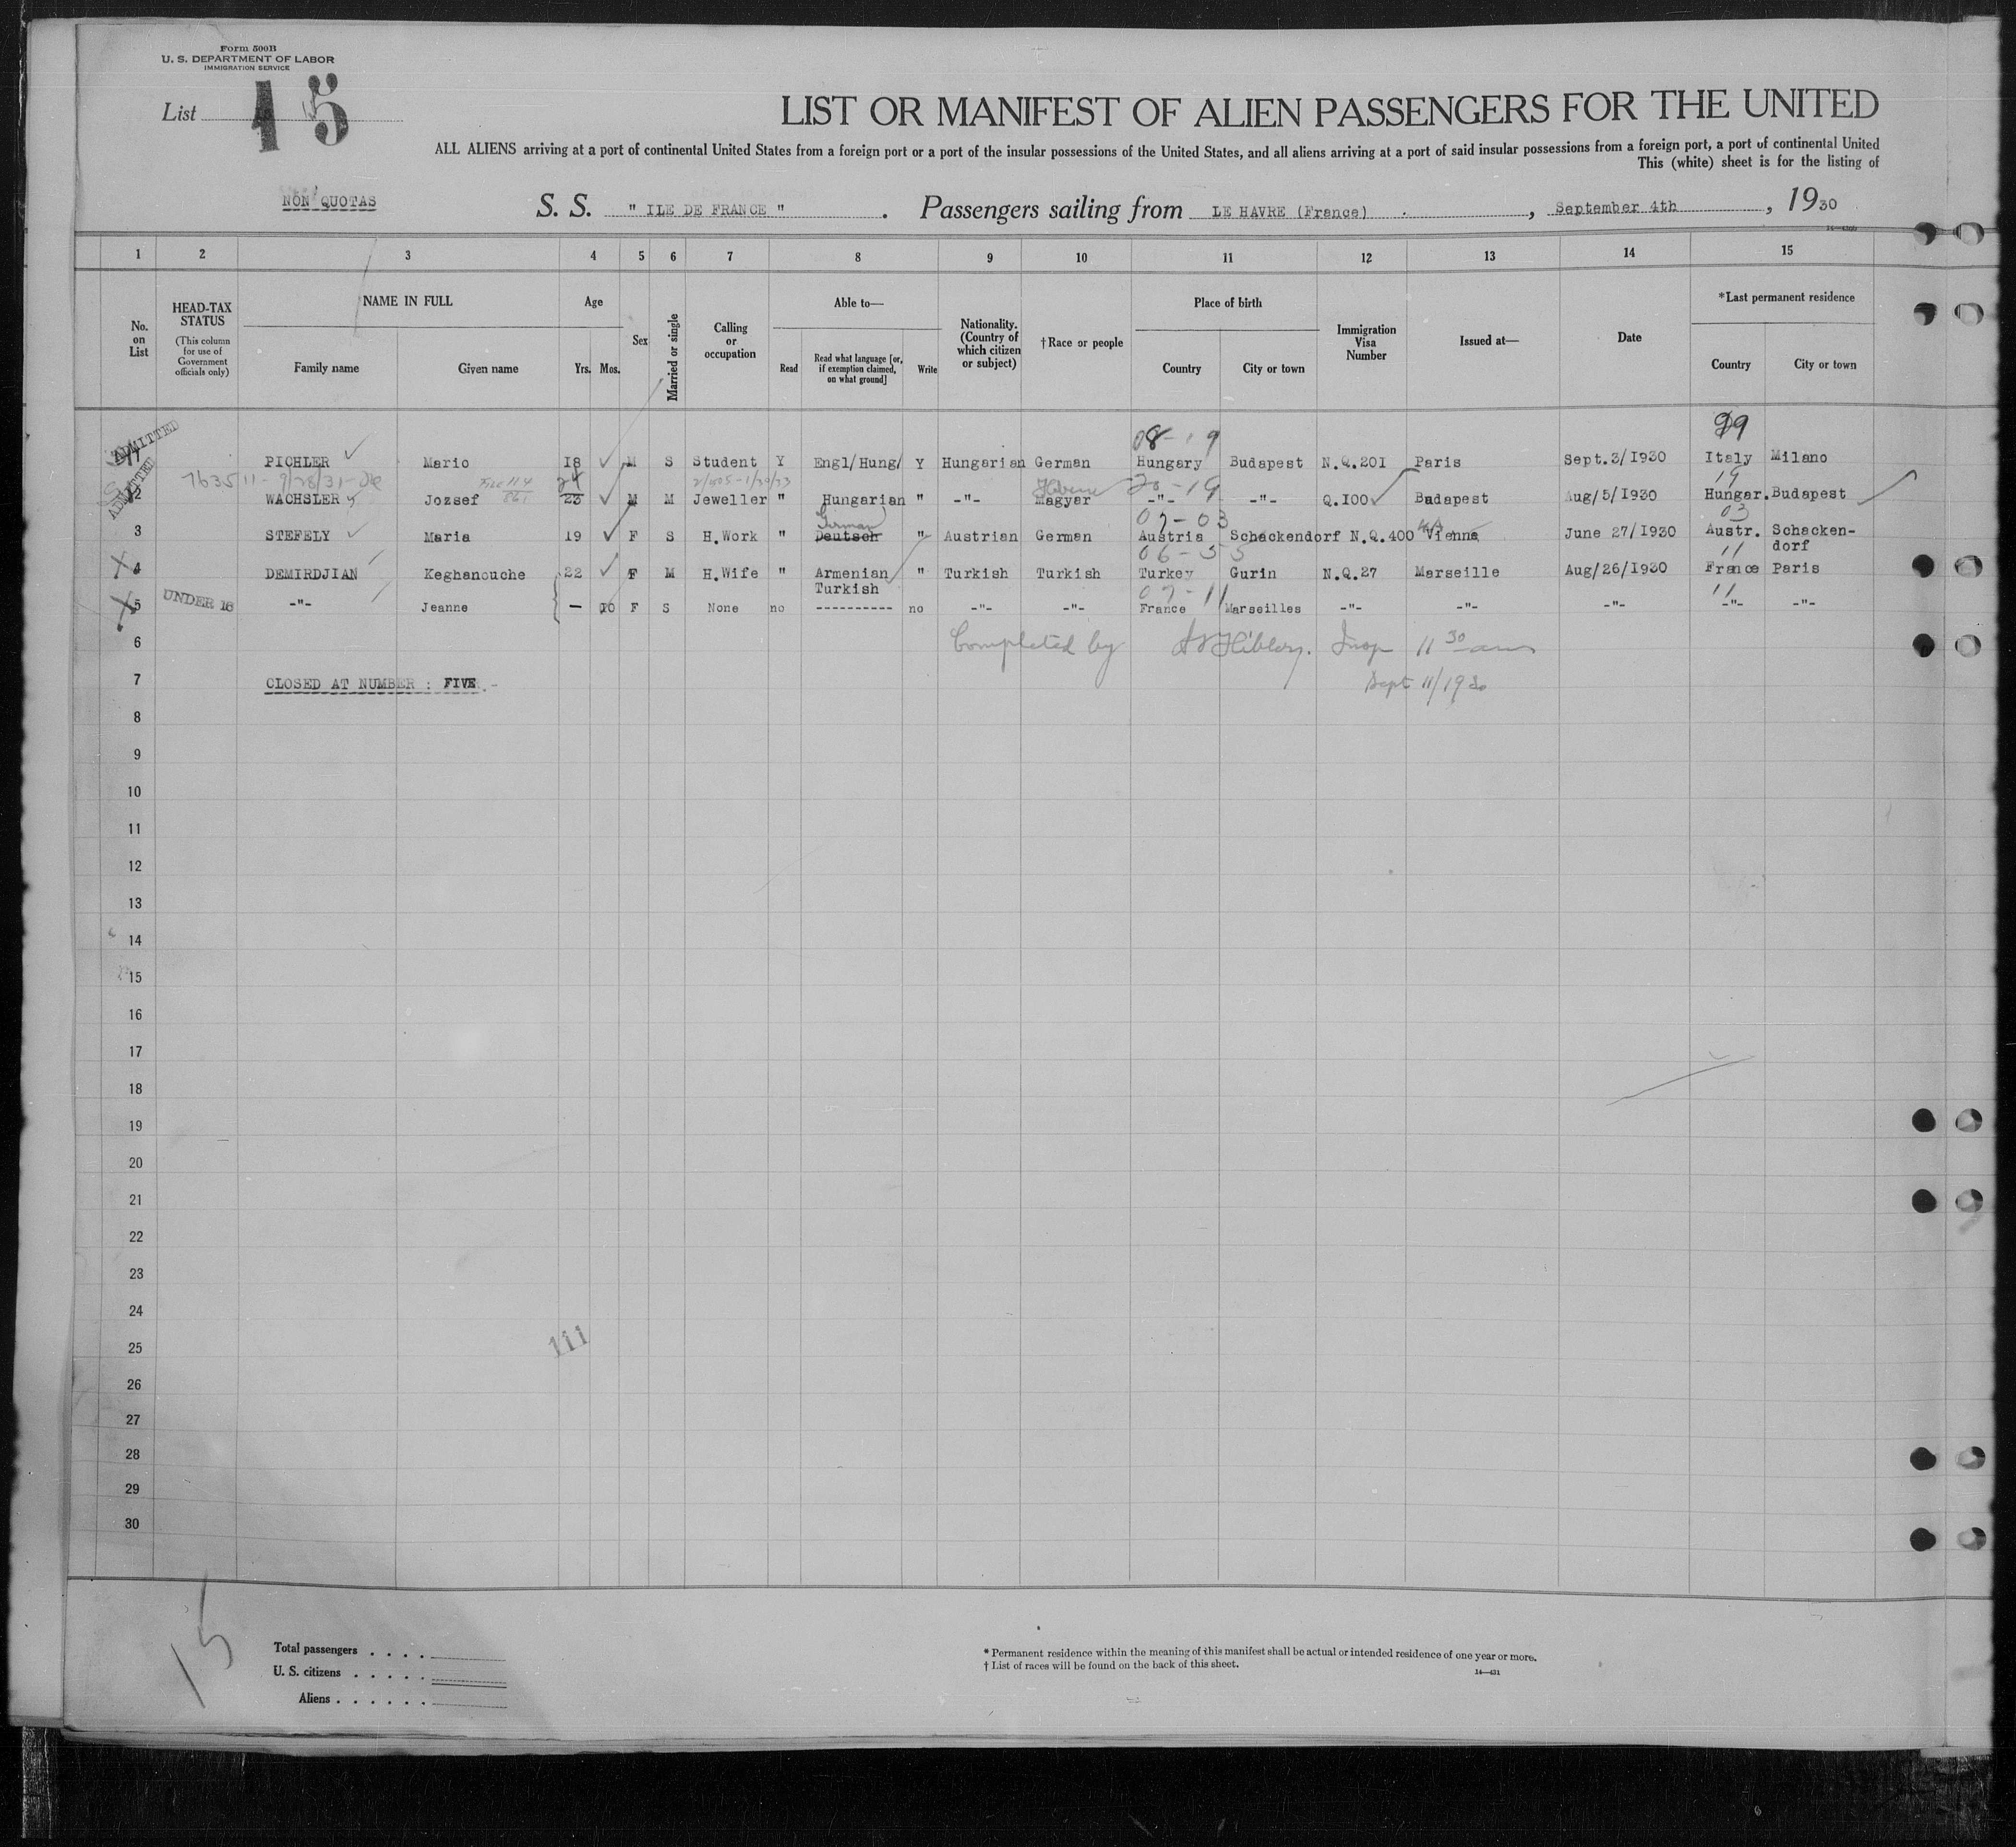 Form 500B
U. S. DEPARTMENT OF LABOR
IMMIGRATION SERVICE
List 15
LIST OR MANIFEST OF ALIEN PASSENGERS FOR THE UNITED
ALL ALIENS arriving at a port of continental United States from a foreign port or a port of the insular possessions of the United States, and all aliens arriving at a port of said insular possessions from a foreign port, a port of continental United
This (white) sheet is for the listing of
NON QUOTAS S. S. " ILE DE FRANCE " . Passengers sailing from LE HAVRE (France) , September 4th , 1930
1 2 3 4 5 6 7 8 9 10 11 12 13 14 15
No. on List
HEAD-TAX STATUS
(This column for use of Government officials only)
NAME IN FULL
Family name Given name
Age
Yrs. Mos.
Sex
Married or single
Calling or occupation
Able to—
Read
Read what language [or, if exemption claimed, on what ground]
Write
Nationality. (Country of which citizen or subject)
†Race or people
Place of birth
Country City or town
Immigration Visa Number
Issued at—
Date
*Last permanent residence
Country City or town
08-19 99
ADMITTED PICHLER Mario 18 M S Student Y Engl/Hung/ Y Hungarian German Hungary Budapest N.Q.201 Paris Sept.3/1930 Italy Milano
763511 - 9/28/31 114 861 24 1/30/33 20-19 19
ADMITTED 2 WACHSLER Jozsef 23 M M Jeweller " Hungarian " -"- Magyar -"- -"- Q.100 Budapest Aug/5/1930 Hungar. Budapest
German 07-03 03
3 STEFELY Maria 19 F S H.Work " Deutsch " Austrian German Austria Schackendorf N.Q.400 Vienna June 27/1930 Austr. Schacken-
dorf
06-55 11
X 4 DEMIRDJIAN Keghanouche 22 F M H.Wife " Armenian " Turkish Turkish Turkey Gurin N.Q.27 Marseille Aug/26/1930 France Paris
Turkish
07-11 11
X 5 UNDER 16 -"- Jeanne — 10 F S None no ---------- no -"- -"- France Marseilles -"- -"- -"- -"- -"-
6 Completed by Insp 11 30 am
7 CLOSED AT NUMBER : FIVE.- Sept 11/1930
8
9
10
11
12
13
14
15
16
17
18
19
20
21
22
23
24
111
25
26
27
28
29
30
15
Total passengers . . . .
U. S. citizens . . . . .
Aliens . . . . . .
* Permanent residence within the meaning of this manifest shall be actual or intended residence of one year or more.
† List of races will be found on the back of this sheet.
14—431